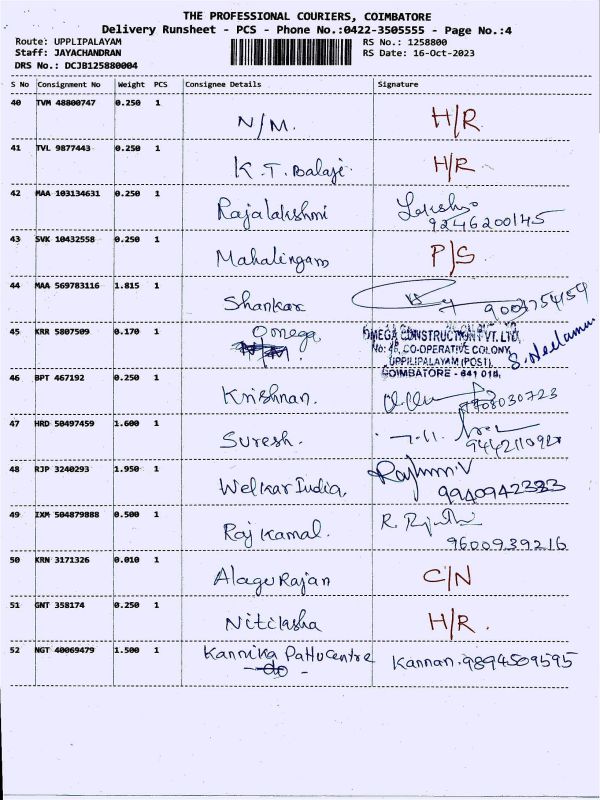 THE PROFESSIONAL COURIERS, COIMBATORE
Delivery Runsheet - PCS - Phone No.:0422-3505555 - Page No.:4
Route: UPPLIPALAYAM RS No.: 1258800
Staff: JAYACHANDRAN RS Date: 16-Oct-2023
DRS No.: DCJB125880004
S No Consignment No Weight PCS Consignee Details Signature
40 TVM 48800747 0.250 1 N/M. H/R
41 TVL 9877443 0.250 1 K.T. Balaji H/R
42 MAA 103134631 0.250 1 Rajalakshmi
9246200145
43 SVK 10432558 0.250 1 Mahalingam P/S
44 MAA 569783116 1.815 1 Shankar 9004754154
45 KRR 5807509 0.170 1 Omega OMEGA CONSTRUCTION PVT. LTD,
CO-OPERATIVE COLONY
UPPILIPALAYAM (POST),
COIMBATORE - 641 015,
46 BPT 467192 0.250 1 Krishnan. 9808030723
47 HRD 50497459 1.600 1 Suresh.
48 RJP 3240293 1.950 1 Welkar India,
9940942323
49 IXM 504879888 0.500 1 Raj Kamal.
9600939216
50 KRN 3171326 0.010 1 Alagu Rajan C/N
51 GNT 358174 0.250 1 Nitiksha H/R.
52 NGT 40069479 1.500 1 Kannika Pattu Centre Kannan. 9894509595
-do-